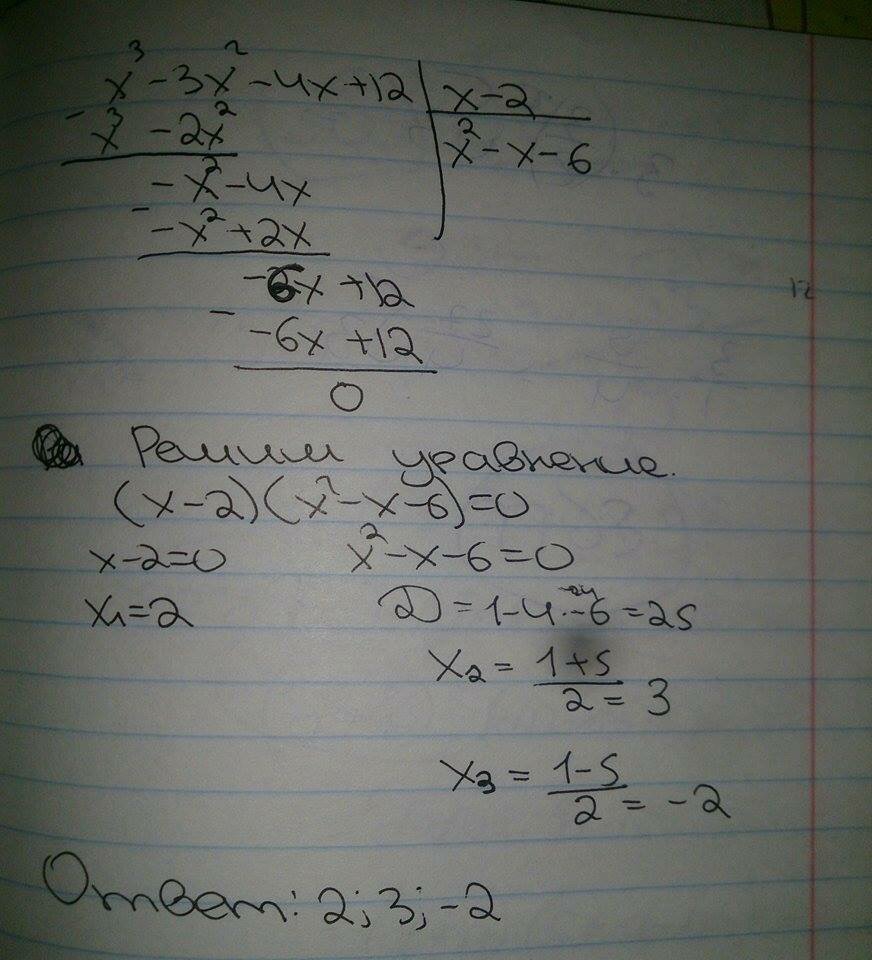 x³ - 3x² - 4x + 12 | x - 2
- x³ - 2x² | x² - x - 6
- x² - 4x
- - x² + 2x
- 6x + 12
- - 6x + 12
0
Решим уравнение.
(x - 2)(x² - x - 6) = 0
x - 2 = 0 x² - x - 6 = 0
x₁ = 2 D = 1 - 4 · -6 = 25
-24
x₂ = 1 + 5 / 2 = 3
x₃ = 1 - 5 / 2 = -2
Ответ: 2; 3; -2
12